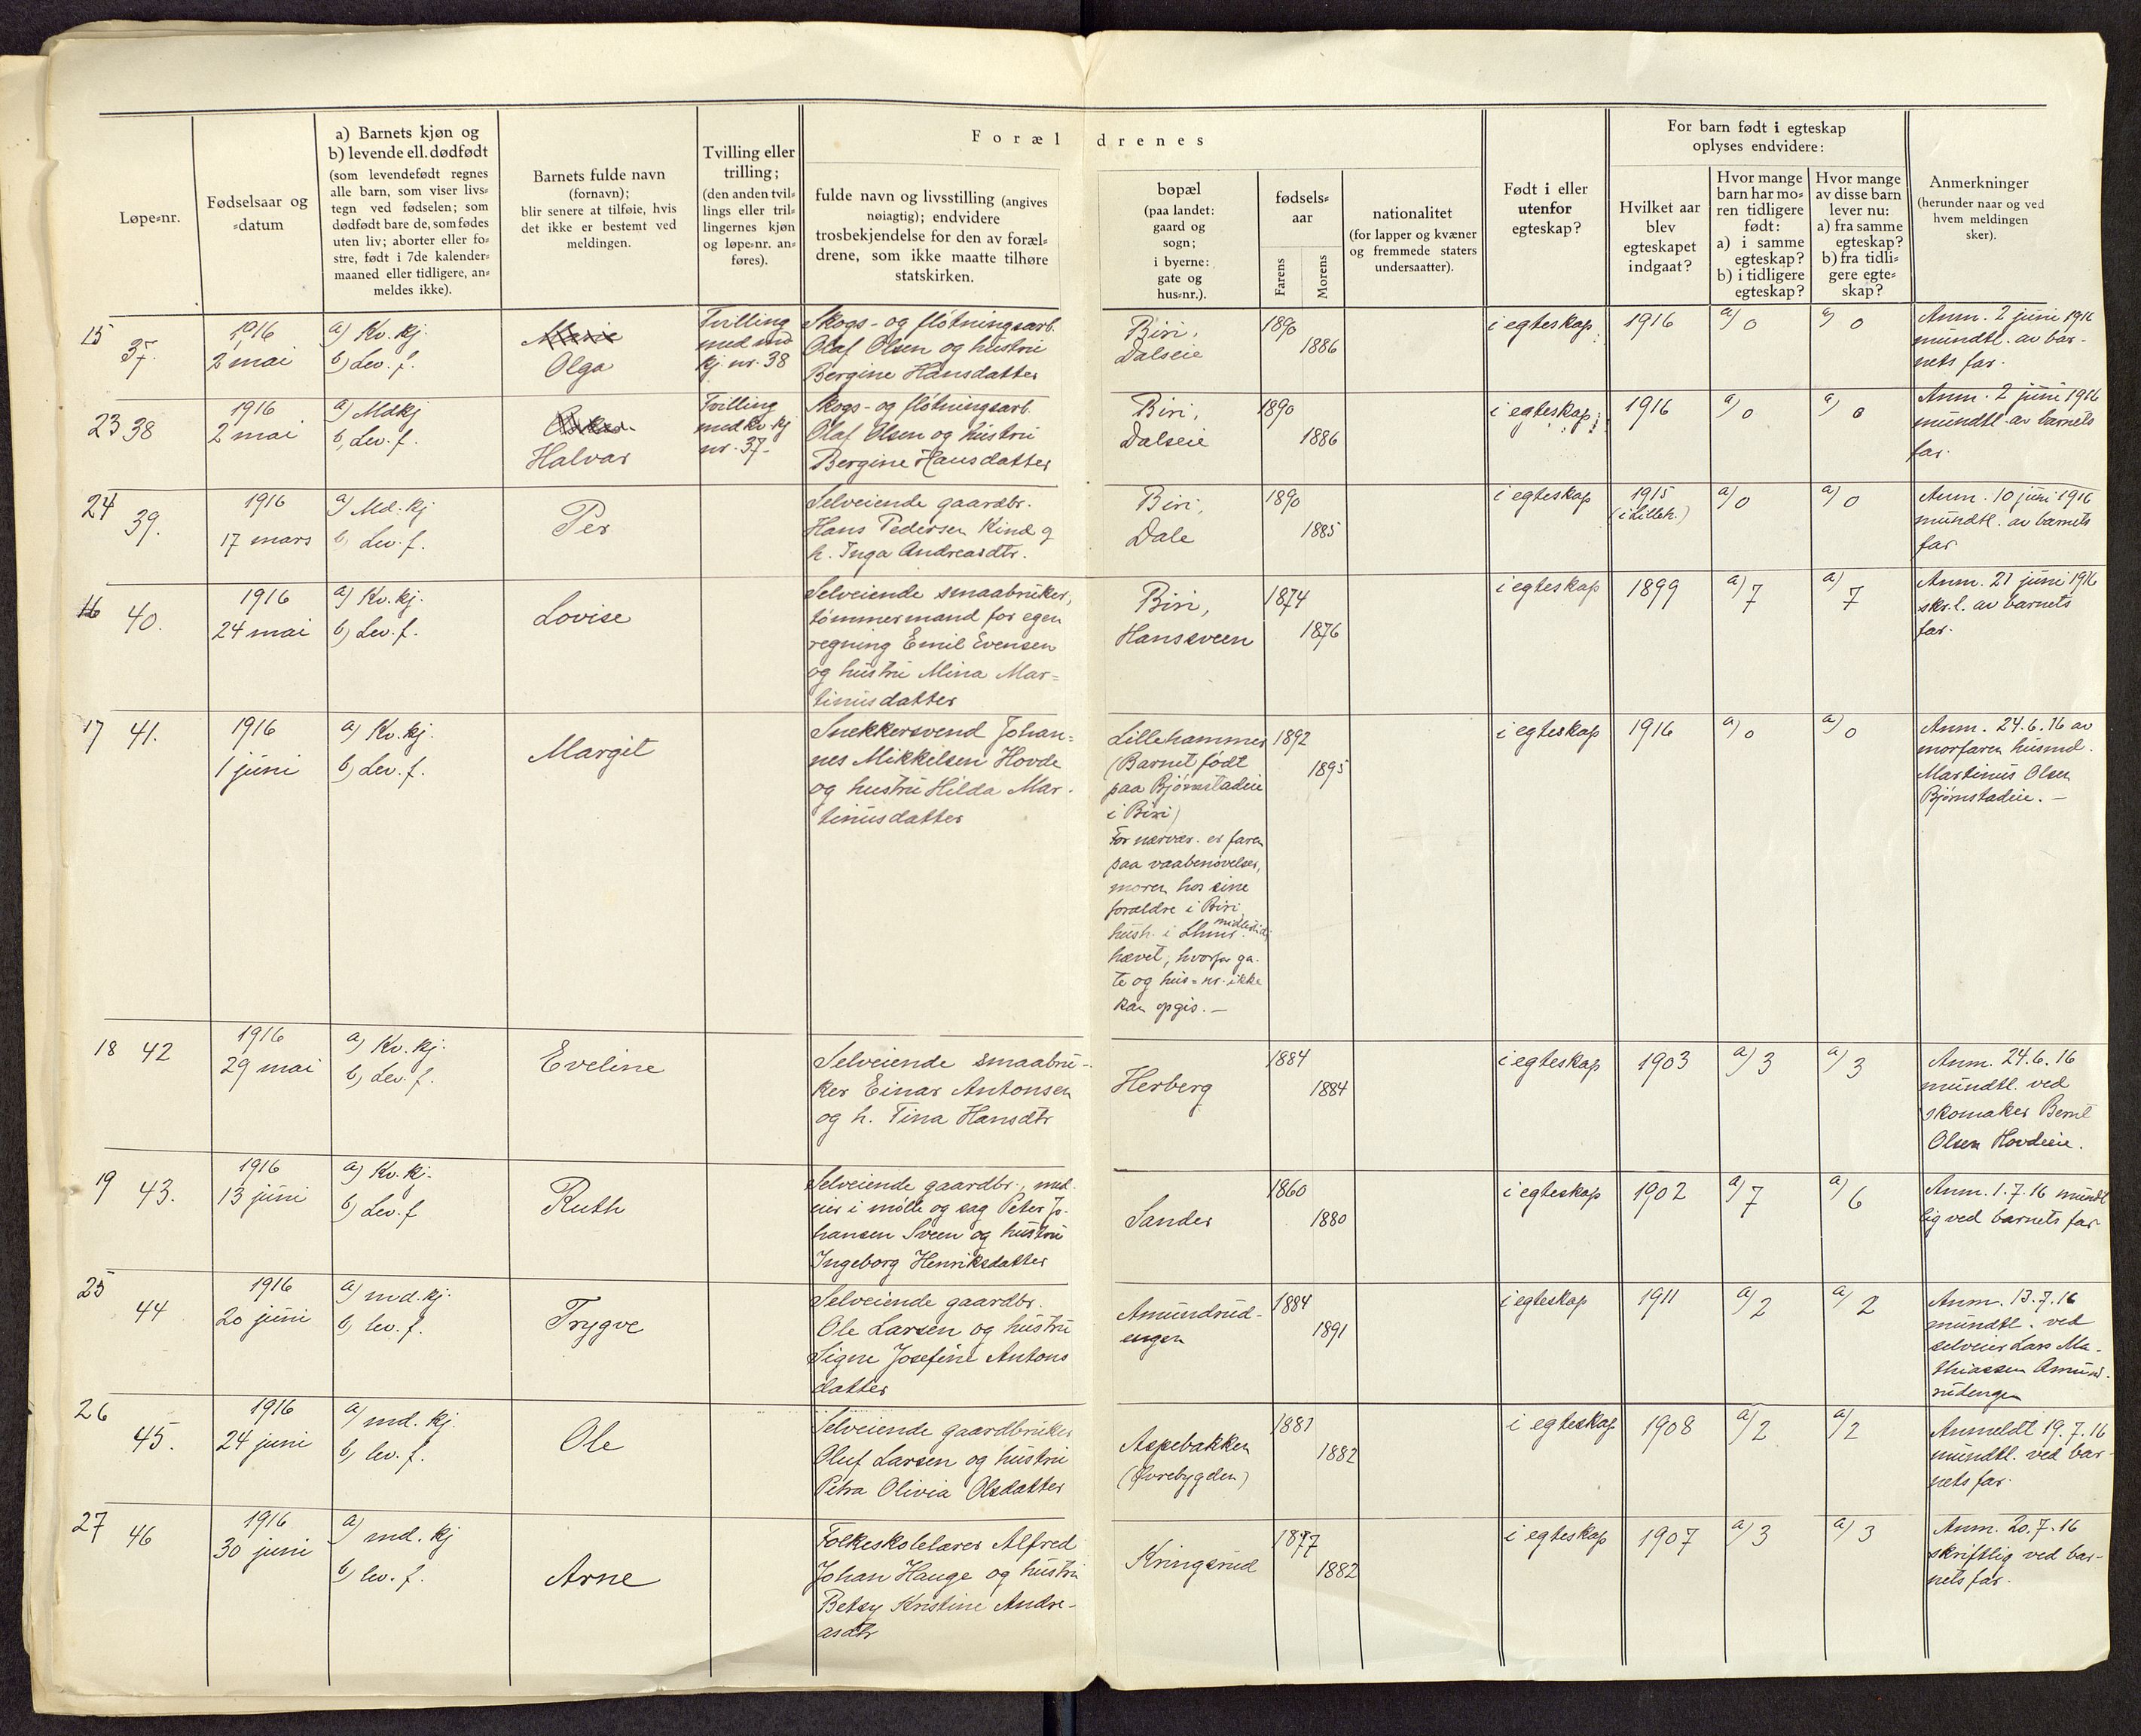 Foræl drenes
For barn født i egteskap
oplyses endvidere:
Løpe=nr.
Fødselsaar og
=datum
a) Barnets kjøn og
b) levende ell. dødfødt
(som levendefødt regnes
alle barn, som viser livs=
tegn ved fødselen; som
dødfødt bare de, som fødes
uten liv; aborter eller fo=
stre, født i 7de kalender=
maaned eller tidligere, an=
meldes ikke).
Barnets fulde navn
(fornavn);
blir senere at tilføie, hvis
det ikke er bestemt ved
meldingen.
Tvilling eller
trilling;
(den anden tvil=
lings eller tril=
lingernes kjøn
og løpe=nr. an=
føres).
fulde navn og livsstilling (angives
nøiagtig); endvidere
trosbekjendelse for den av foræl=
drene, som ikke maatte tilhøre
statskirken.
bopæl
(paa landet:
gaard og
sogn;
i byerne:
gate og
hus=nr.).
fødsels=
aar
Farens
Morens
nationalitet
(for lapper og kvæner
og fremmede staters
undersaatter).
Født i eller
utenfor
egteskap?
Hvilket aar
blev
egteskapet
indgaat?
Hvor mange
barn har mo=
ren tidligere
født:
a) i samme
egteskap?
b) i tidligere
egteskap?
Hvor mange
av disse barn
lever nu:
a) fra samme
egteskap?
b) fra tidli=
gere egte=
skap?
Anmerkninger
(herunder naar og ved
hvem meldingen
sker).
15
37.
1916
2 mai
a) Kv. kj.
b) Lev. f.
Marie
Olga
Tvilling
med md
kj. nr. 38
Skogs- og fløtningsarb.
Olaf Olsen og hustru
Bergine Hansdatter
Biri,
Dalseie
1890
1886
i egteskap
1916
a) 0
a) 0
Anm. 2 juni 1916
mundtl. av bar-
nets far.
23 38
1916
2 mai
a) Mdkj
b) Lev. f.
Halvar
Tvilling
med kv. kj
nr. 37.
Skogs- og fløtningsarb.
Olaf Olsen og hustru
Bergine Hansdatter
Biri,
Dalseie
1890
1886
i egteskap
1916
a) 0
a) 0
Anm. 2 juni 1916
mundtl. av barnets
far.
24
39.
1916
17 mars
a) Md. kj
b) Lev. f.
Per
Selveiende gaardbr.
Hans Pedersen Kind og
h. Inga Andreasdtr.
Biri,
Dale
1890
1885
i egteskap
1915
(i Lilleh.)
a) 0
a) 0
Anm. 10 juni 1916
mundtl. av barnets
far
16
40.
1916
24 mai
a) Kv. kj.
b) Lev. f.
Lovise
Selveiende smaabruker,
tømmermand for egen
regning Emil Evensen
og hustru Mina Mar=
tinusdatter
Biri,
Hanssveen
1874
1876
i egteskap
1899
a) 7
a) 7
Anm. 21 juni 1916
skr.l. av barnets
far.
17 41.
1916
1 juni
a) Kv. kj.
b) Lev. f.
Margit
Snekkersvend Johan=
nes Mikkelsen Hovde
og hustru Hilda Mar-
tinusdatter
Lillehammer
(Barnet født
paa Bjørnstadeie
i Biri)
For nærvær. er faren
paa vaabenøvelser,
moren hos sine
forældre i Biri
hush. i Lhmr. midlertid.
hævet, hvorfor ga-
te og hus=nr. ikke
kan opgis. —
1892
1895
i egteskap
1916
a) 0
a) 0
Anm. 24.6.16 av
morfaren husmd.
Martinus Olsen
Bjørnstadeie. —
18 42
1916
29 mai
a) Kv. kj.
b) Lev. f.
Eveline
Selveiende smaabru-
ker Einar Antonsen
og h. Tina Hansdtr
Herberg
1884
1884
i egteskap
1903
a) 3
a) 3
Anm. 24.6.16
mundtl. ved
skomaker Bernt
Olsen Hovdeeie.
19 43.
1916
13 juni
a) Kv. kj.
b) Lev. f
Ruth
Selveiende gaardbr., med-
eier i mølle og sag Peter Jo-
hansen Sveen og hustru
Ingeborg Henriksdatter
Sander
1860
1880
i egteskap
1902
a) 7
a) 6
Anm. 1.7.16 mundt
lig ved barnets far
25
44
1916
20 juni
a) md. kj.
b) lev. f.
Trygve
Selveiende gaardbr.
Ole Larsen og hustru
Signe Josefine Antons
datter
Amundrud-
engen
1884
1891
i egteskap
1911
a) 2
a) 2
Anm. 13.7.16
mundtl. ved
selveier Lars Ma-
thiassen Amund-
rudengen
26
45.
1916
24 juni
a) md. kj.
b) lev. f.
Ole
Selveiende gaardbruker
Oluf Larsen og hustru
Petra Olivia Olsdatter
Aspebakken
(Øvrebygden)
1881
1882
i egteskap
1908
a) 2
a) 2
Anmeldt 19.7.16
mundtl. ved bar-
nets far.
27
46
1916
30 juni
a) md. kj
b) lev. f.
Arne
Folkeskolelærer Alfred
Johan Hauge og hustru
Betsy Kristine Andre-
asdtr
Kringsrud
1877
1882
i egteskap
1907
a) 3
a) 3
Anm. 20.7.16
skriftlig ved bar-
nets far.